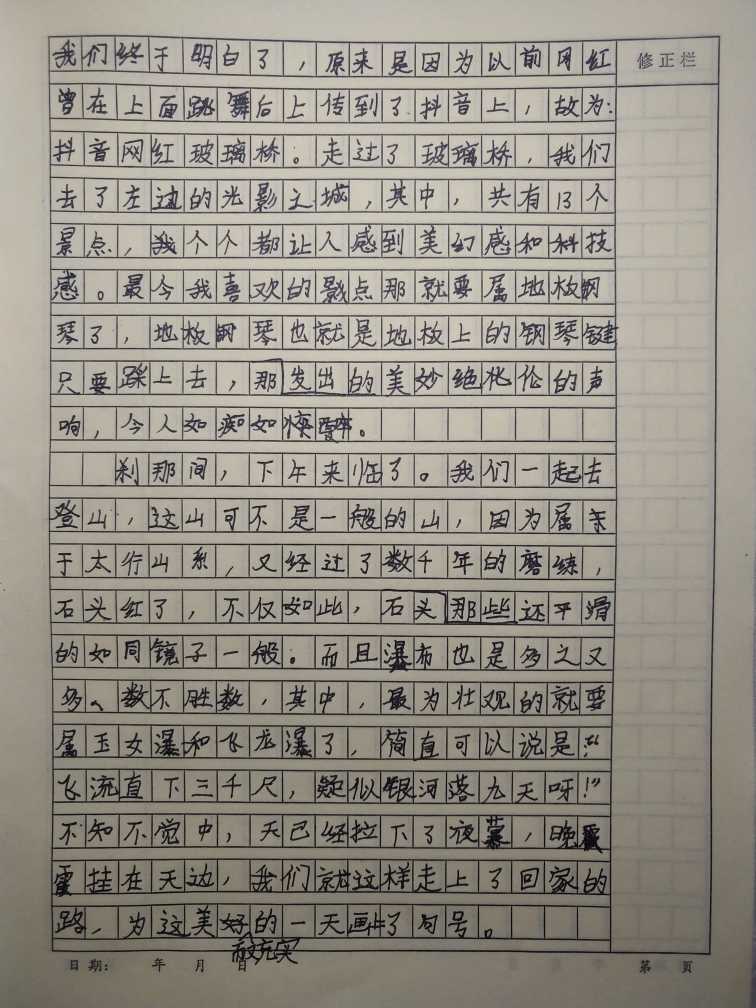 我们终于明白了，原来是因为以前网红
修正栏
曾在上面跳舞后上传到了抖音上，故为：
抖音网红玻璃桥。走过了玻璃桥，我们
去了左边的光影之城，其中，共有13个
景点，个个都让人感到美幻感和科技
感。最令我喜欢的景点那就要属地板钢
琴了，地板钢琴也就是地板上的钢琴键
只要踩上去，那发出的美妙绝伦的声
响，令人如痴如醉。
刹那间，下午来临了。我们一起去
登山，这山可不是一般的山，因为属
于太行山系，又经过了数千年的磨练，
石头红了，不仅如此，石头那些还平滑
的如同镜子一般。而且瀑布也是多之又
多、数不胜数，其中，最为壮观的就要
属玉女瀑和飞龙瀑了，简直可以说是：“
飞流直下三千尺，疑似银河落九天呀！”
不知不觉中，天已经拉下了夜幕，晚
霞挂在天边，我们就这样走上了回家的
路，为这美好的一天画上了句号。
而又充实
日期： 年 月 日
第 页